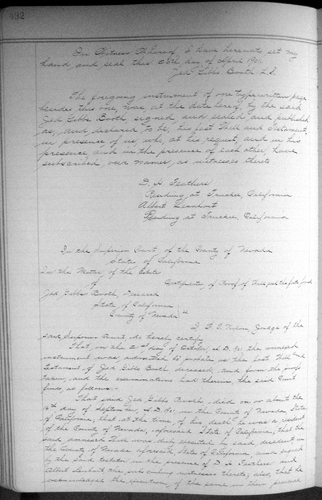 432
In Witness Whereof, I have hereunto set my
hand and seal this day of April 190
Jed Gibbs Booth L.S.
The foregoing instrument of one typewritten page
besides this one, was, at the date hereof, by the said
Jed Gibbs Booth signed and sealed and published
as, and declared to be, his last Will and Testament,
in presence of us, who, at his request, and in his
presence, and in the presence of each other, have
subscribed our names as witnesses thereto
Residing at Truckee, California
Albert
Residing at Truckee, California
In the Superior Court of the County of Nevada
State of California
In the Matter of the Estate
of
Certificate of Proof of Will and the facts found
Jed Gibbs Booth, Deceased
State of California
County of Nevada
I, Judge of the
said Superior Court do hereby certify
That, on the day of October, A.D. the annexed
instrument was admitted to probate as the last Will and
Testament of Jed Gibbs Booth, deceased, and from the proofs
taken, and the examination had therein, the said Court
finds as follows:
That said Jed Gibbs Booth died on or about the
day of September, A.D. in the County of Nevada, State
of California; that at the time of his death he was a resident
of the County of Nevada, aforesaid State of California; that the
said annexed Will was duly executed by said decedent in
the County of Nevada aforesaid State of California, and signed
by the said testator in the presence of
Albert the subscribing witnesses thereto; also that he
acknowledged the execution of the same in their presence